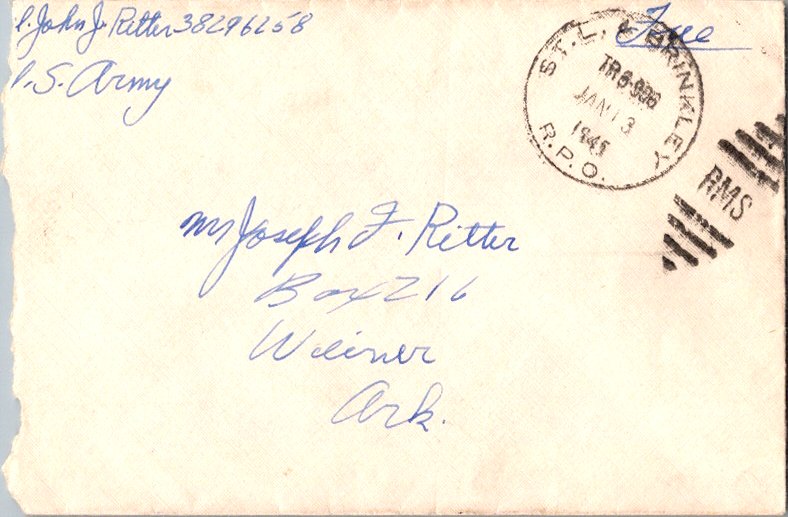 . John J. Ritter 38296258
. S. Army
Free
ST. L. & BRINKLEY
JAN 13
R.P.O.
RMS
Mr Joseph F. Ritter
Box 216
Weiner
Ark.